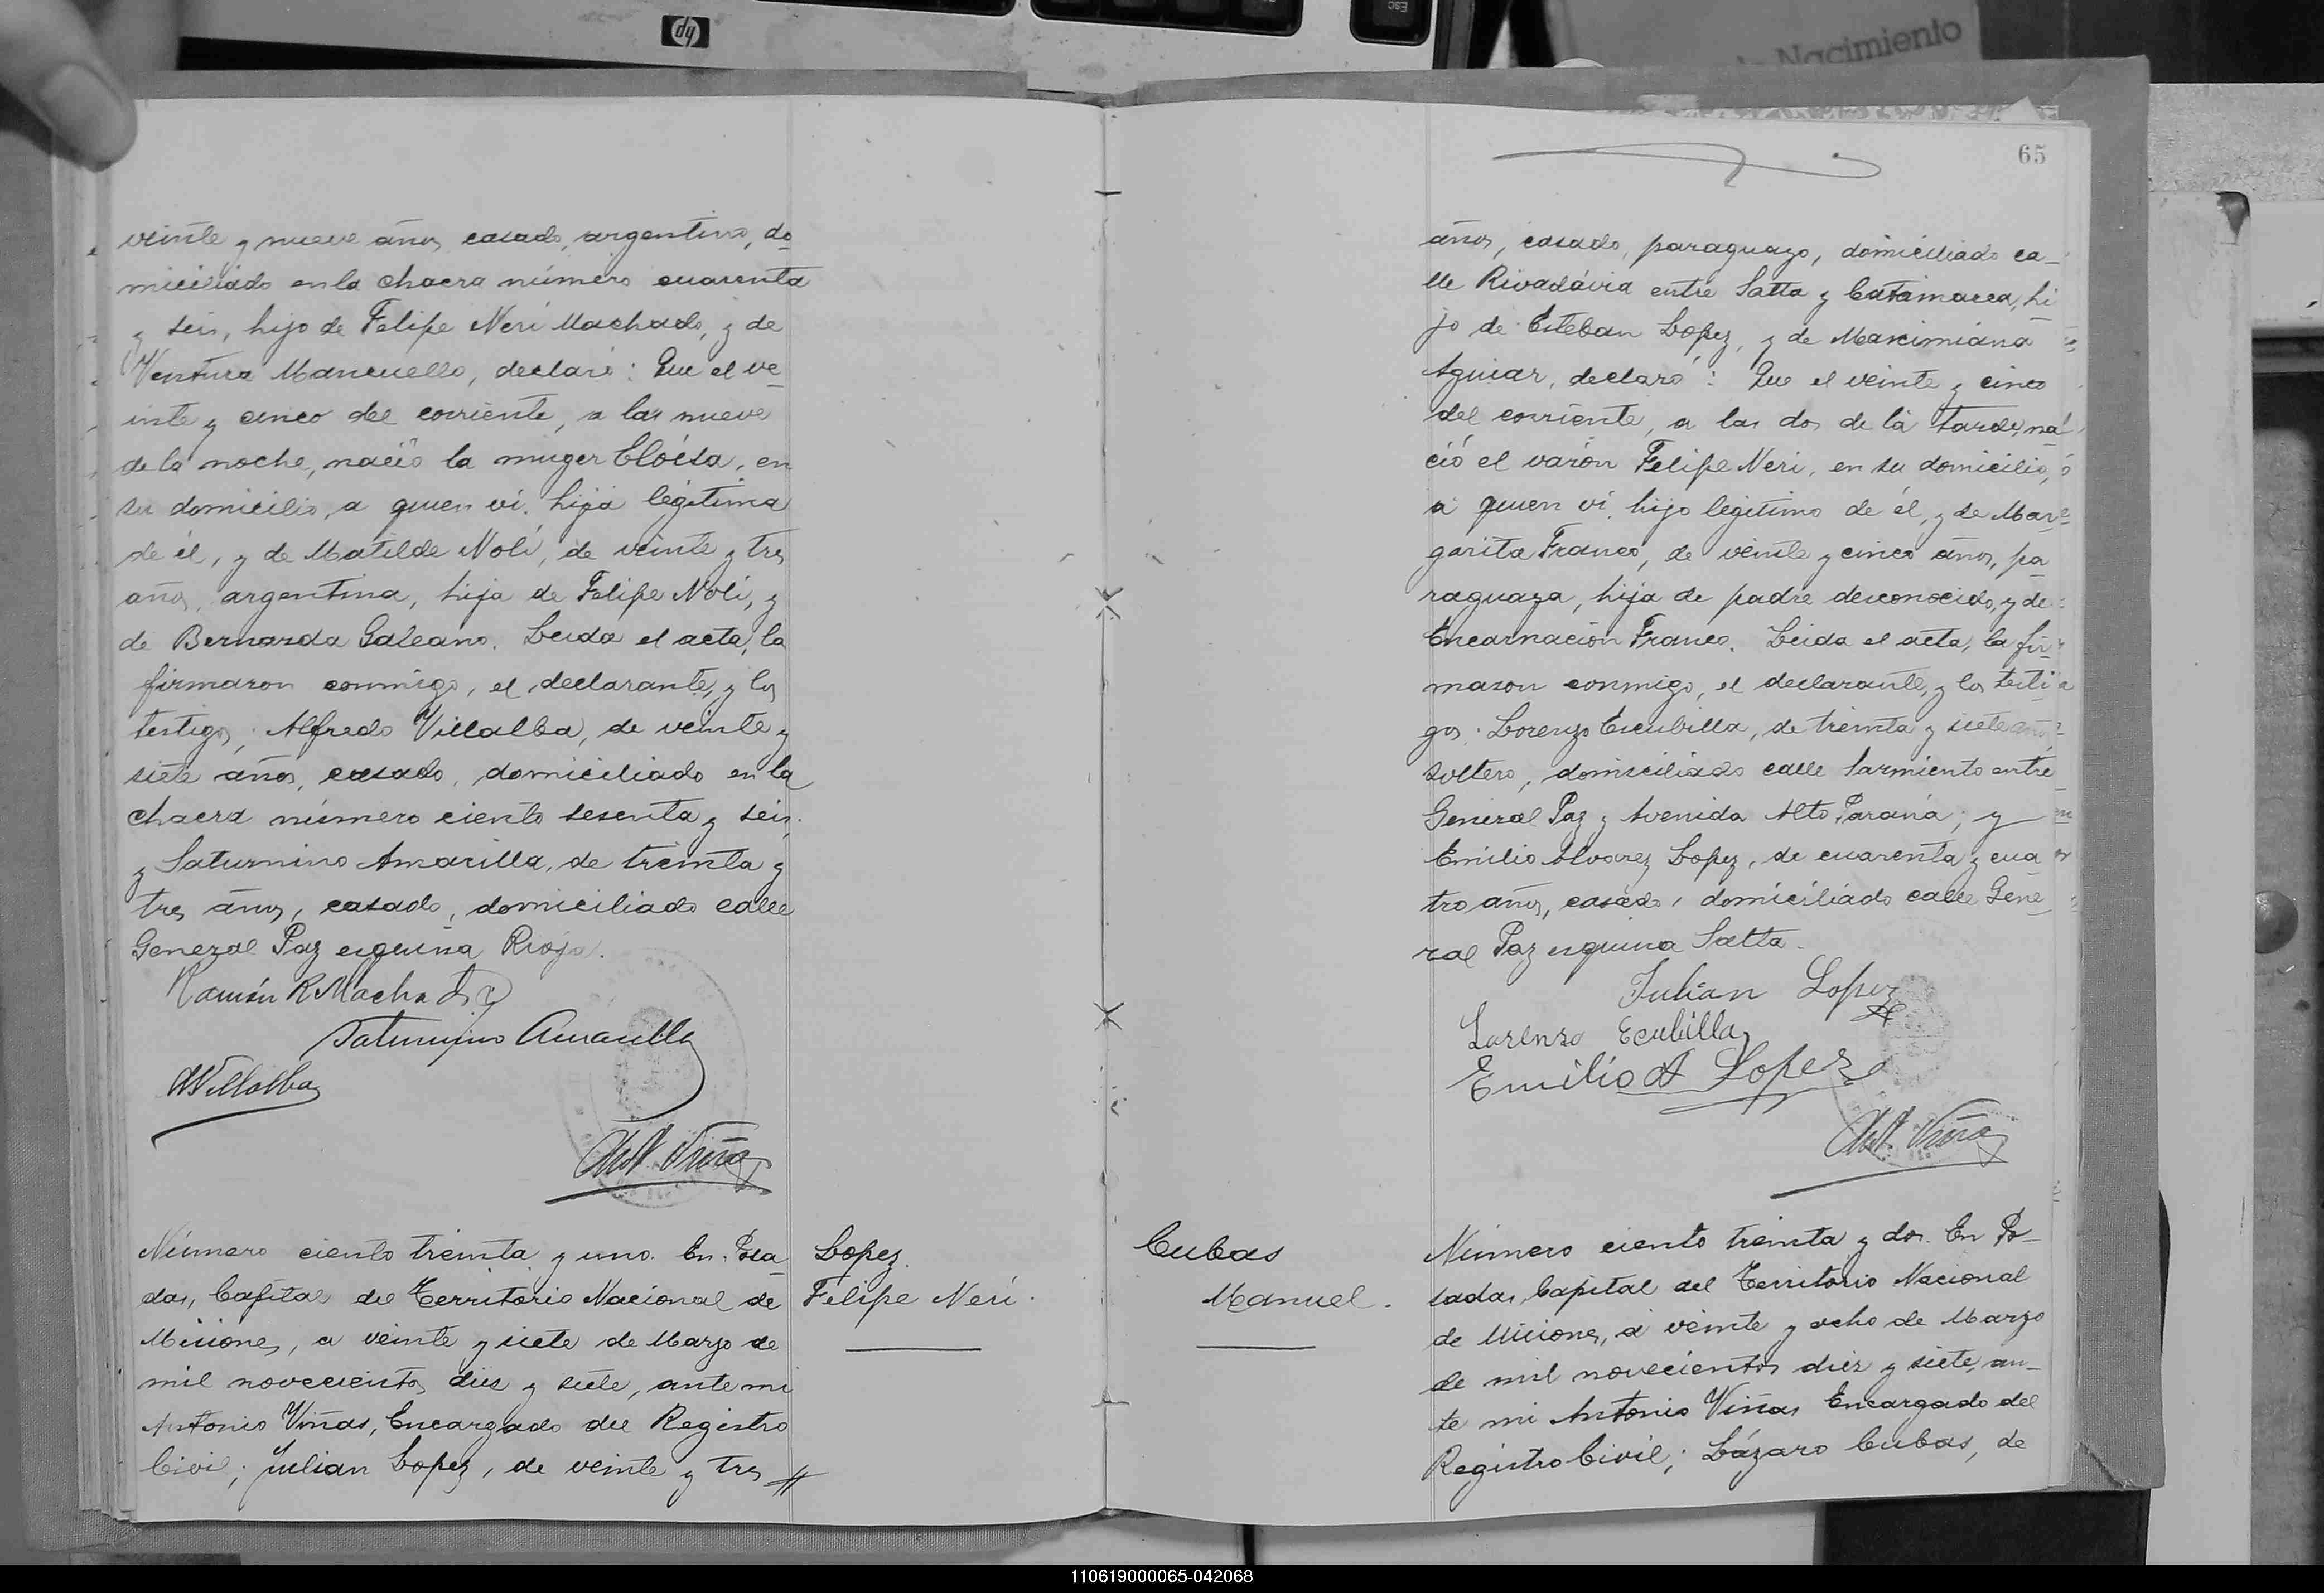 hp
ESC
Nacimiento
veinte y nueve años, casado, argentino, do_
miciliado en la chacra número cuarenta
y seis, hijo de Felipe Neri Machado, y de
Ventura Mancuello, declaró: Que el ve_
inte y cinco del corriente, a las nueve
de la noche, nació la muger Eloísa, en
su domicilio, a quien ví, hija legítima
de él, y de Matilde Noli, de veinte y tres
años, argentina, hija de Felipe Noli, y
de Bernarda Galeano. Leida el acta, la
firmaron conmigo, el declarante, y los
testigos; Alfredo Villalba, de veinte y
siete años, casado, domiciliado en la
chacra número ciento sesenta y seis;
y Saturnino Amarilla, de treinta y
tres años, casado, domiciliado calle
General Paz esquina Rioja.
Ramón R Machado
Saturnino Amarilla
AVillalba
Ant. Viñas
Número ciento treinta y uno. En Posa_
das, Capital del Territorio Nacional de
Misiones, a veinte y siete de Marzo de
mil novecientos diez y siete, ante mi
Antonio Viñas, Encargado del Registro
Civil; Julian Lopez, de veinte y tres
Lopez
Felipe Neri.
65
años, casado, paraguayo, domiciliado ca_
lle Rivadávia entre Salta y Catamarca, hi_
jo de Esteban Lopez, y de Marcimiana
Aguiar, declaró: Que el veinte y cinco
del corriente, a las dos de la tarde, na_
ció el varón Felipe Neri, en su domicilio,
a quien ví, hijo legítimo de él, y de Mar_
garita Franco, de veinte y cinco años, pa_
raguaya, hija de padre desconocido, y de
Encarnación Franco. Leida el acta, la fir_
maron conmigo, el declarante, y los testi_
gos: Lorenzo Escubilla, de treinta y siete años
soltero, domiciliado calle Sarmiento entre
General Paz y Avenida Alto Paraná; y
Emilio Alvarez Lopez, de cuarenta y cua_
tro años, casado, domiciliado calle Gene_
ral Paz esquina Salta.
Julian Lopez
Lorenzo Ecubilla
Emilio A Lopez
Ant. Viñas
Cubas
Manuel.
Número ciento treinta y dos. En Po_
sadas, Capital del Territorio Nacional
de Misiones, a veinte y ocho de Marzo
de mil novecientos diez y siete, an_
te mi Antonio Viñas Encargado del
Registro Civil; Lázaro Cubas, de
110619000065-042068